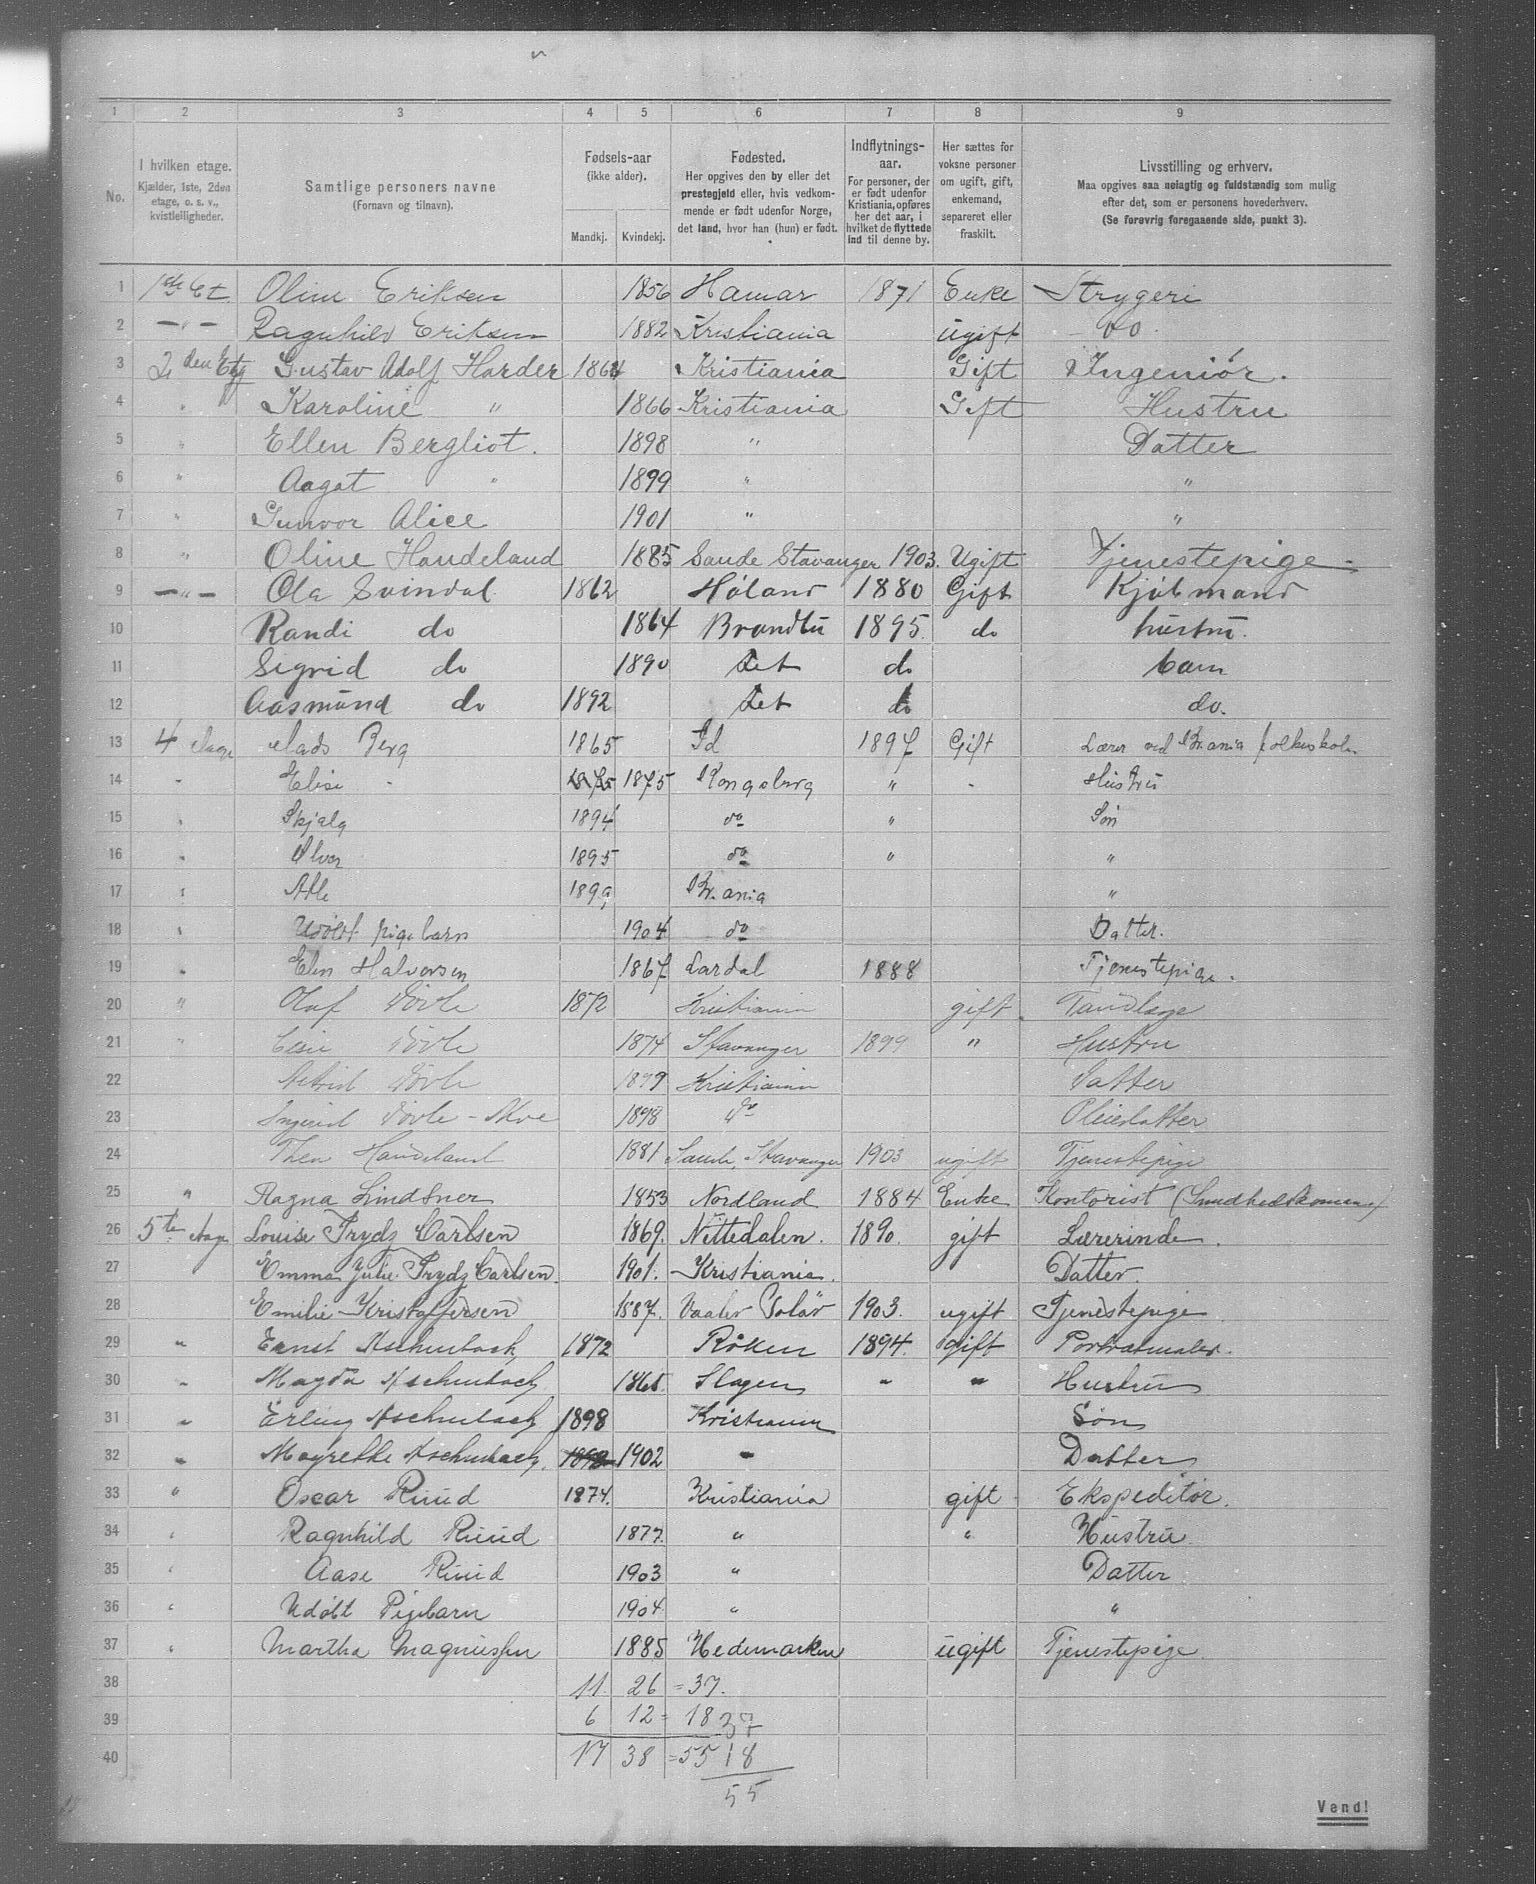 1 2 3 4 5 6 7 8 9
No.
I hvilken etage.
Kjælder, 1ste, 2den
etage, o. s. v.,
kvistleiligheder.
Samtlige personers navne
(Fornavn og tilnavn).
Fødsels-aar
(ikke alder).
Mandkj. Kvindekj.
Fødested.
Her opgives den by eller det
prestegjeld eller, hvis vedkom-
mende er født udenfor Norge,
det land, hvor han (hun) er født.
Indflytnings-
aar.
For personer, der
er født udenfor
Kristiania, opføres
her det aar, i
hvilket de flyttede
ind til denne by.
Her sættes for
voksne personer
om ugift, gift,
enkemand,
separeret eller
fraskilt.
Livsstilling og erhverv.
Maa opgives saa nøiagtig og fuldstændig som mulig
efter det, som er personens hovederhverv.
(Se forøvrig foregaaende side, punkt 3).
1 1ste Et. Oline Eriksen 1856 Hamar 1871 Enke Strygeri
2 — " — Ragnhild Eriksen 1882 Kristiania ugift do.
3 2den Etg Gustav Adolf Harder 1864 Kristiania Gift Ingeniør.
4 " Karoline " 1866 Kristiania Gift Hustru
5 " Ellen Bergliot. 1898 " Datter
6 " Aagot " 1899 " "
7 " Gunvor Alice 1901 " "
8 " Oline Handeland 1885 Sande Stavanger 1903. Ugift Tjenestepige
9 — " — Ola Svindal 1862 Høland 1880 Gift Kjøbmand
10 Randi do 1864 Brandbu 1895. do hustru.
11 Sigrid do 1890 det do barn
12 Aasmund do 1892 det do do.
13 4 Etage Mads Berg 1865 Id 1897 Gift Lærer ved Kr.ania folkeskole
14 - Elise - 1875 Kongsberg " - Hustru
15 " Skjalg 1894 do " Søn
16 " Olver 1895 do " "
17 " Atle 1899 Kr.ania "
18 " Udøbt pigebarn 1904 do Datter.
19 " Elen Halvorsen 1867 Lardal 1888 Tjenestepige.
20 " Olaf Døvle 1872 Kristiania gift Tandlæge
21 " Elise Døvle 1874 Stavanger 1899 " Hustru
22 Astrid Døvle 1899 Kristiania Datter
23 Ingrid Døvle - Moe 1898 do Pleiedatter
24 Thea Handeland 1881 Sande, Stavanger 1903 ugift Tjenestepige
25 " Ragna Lindsner 1853 Nordland 1884 Enke Kontorist (Sundhedskomm.)
26 5te Etage Louise Prydz Carlsen 1869. Nittedalen. 1890. gift Lærerinde.
27 Emma Julie Prydz Carlsen. 1901. Kristiania. Datter.
28 Emilie Kristoffersen 1887. Vaaler Solør 1903. ugift Tjenestepige
29 " Ernst Aschenbach, 1872 Røken 1894. gift Portrætmaler.
30 " Magda Aschenbach, 1865. Slagen " " Hustru
31 " Erling Aschenbach, 1898 Kristiania Søn
32 " Magrethe Aschenbach, 1902 " Datter
33 " Oscar Ruud 1874. Kristiania gift Ekspeditør.
34 " Ragnhild Ruud 1877. " " Hustru
35 " Aase Ruud 1903 " Datter
36 " Udøbt Pigebarn 1904 " "
37 " Martha Magnussen 1885 Hedemarken ugift Tjenestepige.
38 11. 26 = 37.
39 6 12 = 18 37
40 17 38 = 55 18
55
Vend!